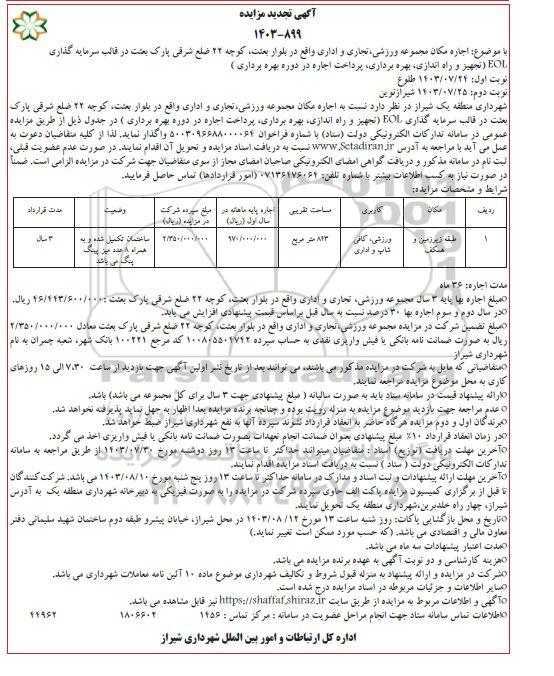 آگهی تجدید مزایده
۱۴۰۳-۸۹۹
با موضوع: اجاره مکان مجموعه ورزشی،تجاری و اداری واقع در بلوار بعثت، کوچه ۲۲ ضلع شرقی پارک بعثت در قالب سرمایه گذاری
EOL (تجهیز و راه اندازی، بهره برداری، پرداخت اجاره در دوره بهره برداری )
نوبت اول: ۱۴۰۳/۰۷/۲۴ طلوع
نوبت دوم: ۱۴۰۳/۰۷/۲۵ شیرازنوین
شهرداری منطقه یک شیراز در نظر دارد نسبت به اجاره مکان مجموعه ورزشی،تجاری و اداری واقع در بلوار بعثت، کوچه ۲۲ ضلع شرقی پارک
بعثت در قالب سرمایه گذاری EOL (تجهیز و راه اندازی، بهره برداری، پرداخت اجاره در دوره بهره برداری ) در جدول ذیل از طریق مزایده
عمومی در سامانه تدارکات الکترونیکی دولت (ستاد) با شماره فراخوان ۵۰۰۳۰۹۶۶۸۸۰۰۰۰۶۴ واگذار نماید. لذا از کلیه متقاضیان دعوت به
عمل می آید با مراجعه به آدرس www.Setadiran.ir نسبت به دریافت اسناد مزایده و تحویل آن اقدام نمایند. در صورت عدم عضویت قبلی،
ثبت نام در سامانه مذکور و دریافت گواهی امضای الکترونیکی صاحبان امضای مجاز از سوی متقاضیان جهت شرکت در مزایده الزامی است. ضمناً
در صورت نیاز به کسب اطلاعات بیشتر با شماره تلفن: ۰۷۱۳۶۴۷۶۰۶۴ (امور قراردادها) تماس حاصل فرمایید.
شرایط و مشخصات مزایده:
ردیف مکان کاربری مساحت تقریبی اجاره پایه ماهانه در سال اول (ریال) مبلغ سپرده شرکت در مزایده (ریال) وضعیت مدت قرارداد
۱ طبقه زیرزمین و همکف ورزشی، کافی شاپ و اداری ۸۲۳ متر مربع ۹۷۰/۰۰۰/۰۰۰ ۲/۳۵۰/۰۰۰/۰۰۰ ساختمان تکمیل شده و به همراه ۸ عدد میز پینگ پنگ می باشد ۳ سال
مدت اجاره: ۳۶ ماه
○مبلغ اجاره بها پایه ۳ سال مجموعه ورزشی، تجاری و اداری واقع در بلوار بعثت، کوچه ۲۲ ضلع شرقی پارک بعثت :۴۶/۴۴۳/۶۰۰/۰۰۰ ریال.
○در سال دوم و سوم اجاره بها ۳۰ درصد نسبت به سال قبل براساس قیمت پیشنهادی افزایش می یابد.
○مبلغ تضمین شرکت در مزایده مجموعه ورزشی،تجاری و اداری واقع در بلوار بعثت، کوچه ۲۲ ضلع شرقی پارک بعثت معادل ۲/۳۵۰/۰۰۰/۰۰۰
ریال به صورت ضمانت نامه بانکی یا فیش واریزی نقدی به حساب سپرده ۱۰۰۸۰۵۵۰۱۷۴۲ کد مرجع ۱۰۰۲۲۱ بانک شهر، شعبه چمران به نام
شهرداری شیراز
○متقاضیانی که مایل به شرکت در مزایده مذکور می باشند، می توانند بعد از تاریخ نشر اولین آگهی جهت بازدید از ساعت ۷،۳۰ الی ۱۵ روزهای
کاری به محل موضوع مزایده مراجعه نمایند.
○ارائه پیشنهاد قیمت در سامانه ستاد باید به صورت سالیانه ( مبلغ پیشنهادی جهت ۳ سال برای کل مجموعه می باشد) باشد.
○عدم مراجعه جهت بازدید موضوع مزایده به منزله رویت بوده و چنانچه برنده مزایده بعدا اظهار به جهل نماید پذیرفته نخواهد شد.
○برندگان اول و دوم مزایده هرگاه حاضر به انعقاد قرارداد نشوند سپرده آنها به نفع شهرداری شیراز ضبط خواهد شد.
○در زمان انعقاد قرارداد ۱۰٪ مبلغ پیشنهادی بعنوان ضمانت انجام تعهدات بصورت ضمانت نامه بانکی یا فیش واریزی اخذ می گردد.
○آخرین مهلت دریافت (توزیع) اسناد : متقاضیان میتوانند حداکثر تا ساعت ۱۳ روز دوشنبه مورخ ۱۴۰۳/۰۷/۳۰ از طریق مراجعه به سامانه
تدارکات الکترونیکی دولت ( ستاد ) نسبت به دریافت اسناد مزایده اقدام نمایند.
○آخرین مهلت ارائه پیشنهادات و ثبت اسناد و مدارک در سامانه حداکثر تا ساعت ۱۳ روز پنج شنبه مورخ ۱۴۰۳/۰۸/۱۰ می باشد. شرکت‌کنندگان
تا قبل از برگزاری کمیسیون مزایده پاکت الف حاوی سپرده شرکت در مزایده را به صورت فیزیکی به دبیرخانه شهرداری منطقه یک به آدرس
شیراز، چهار راه خلدبرین،شهرداری منطقه یک تحویل نمایند.
○تاریخ و محل بازگشایی پاکات: روز شنبه ساعت ۱۳ مورخ ۱۲/ ۱۴۰۳/۰۸ در محل شیراز، خیابان پیشرو طبقه دوم ساختمان شهید سلیمانی دفتر
معاون مالی و اقتصادی می باشد. (که حسب مورد ممکن است تغییر نماید.)
○مدت اعتبار پیشنهادات سه ماه می باشد.
○هزینه کارشناسی و دو نوبت آگهی به عهده برنده مزایده می باشد.
○شرکت در مزایده و ارائه پیشنهاد به منزله قبول شروط و تکالیف شهرداری موضوع ماده ۱۰ آئین نامه معاملات شهرداری می باشد.
○سایر اطلاعات و جزئیات مربوطه در اسناد مزایده درج شده است.
○آگهی و اطلاعات مربوط به مزایده از طریق سایت https://shaffaf.shiraz.ir نیز قابل مشاهده می باشد.
○اطلاعات تماس سامانه ستاد جهت انجام مراحل عضویت در سامانه : مرکز تماس : ۱۴۵۶ ۱۸۰۶۶۰۲ ۴۴۹۶۲
اداره کل ارتباطات و امور بین الملل شهرداری شیراز